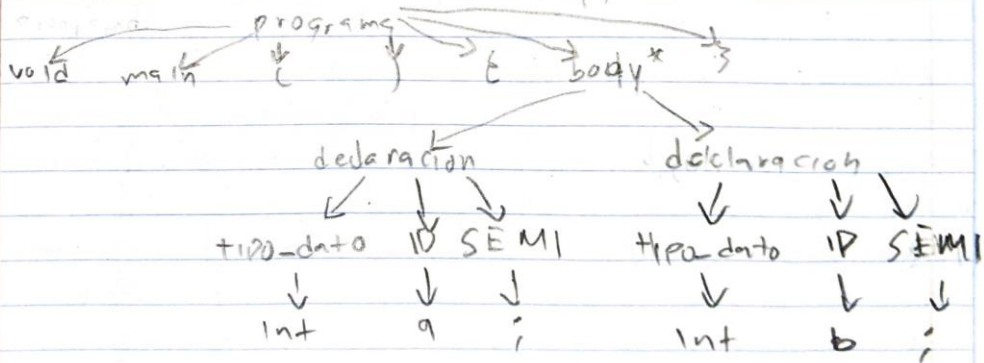 programa
void main ( ) { body* }
declaracion declaracion
tipo_dato ID SEMI tipo_dato ID SEMI
int a ; int b ;